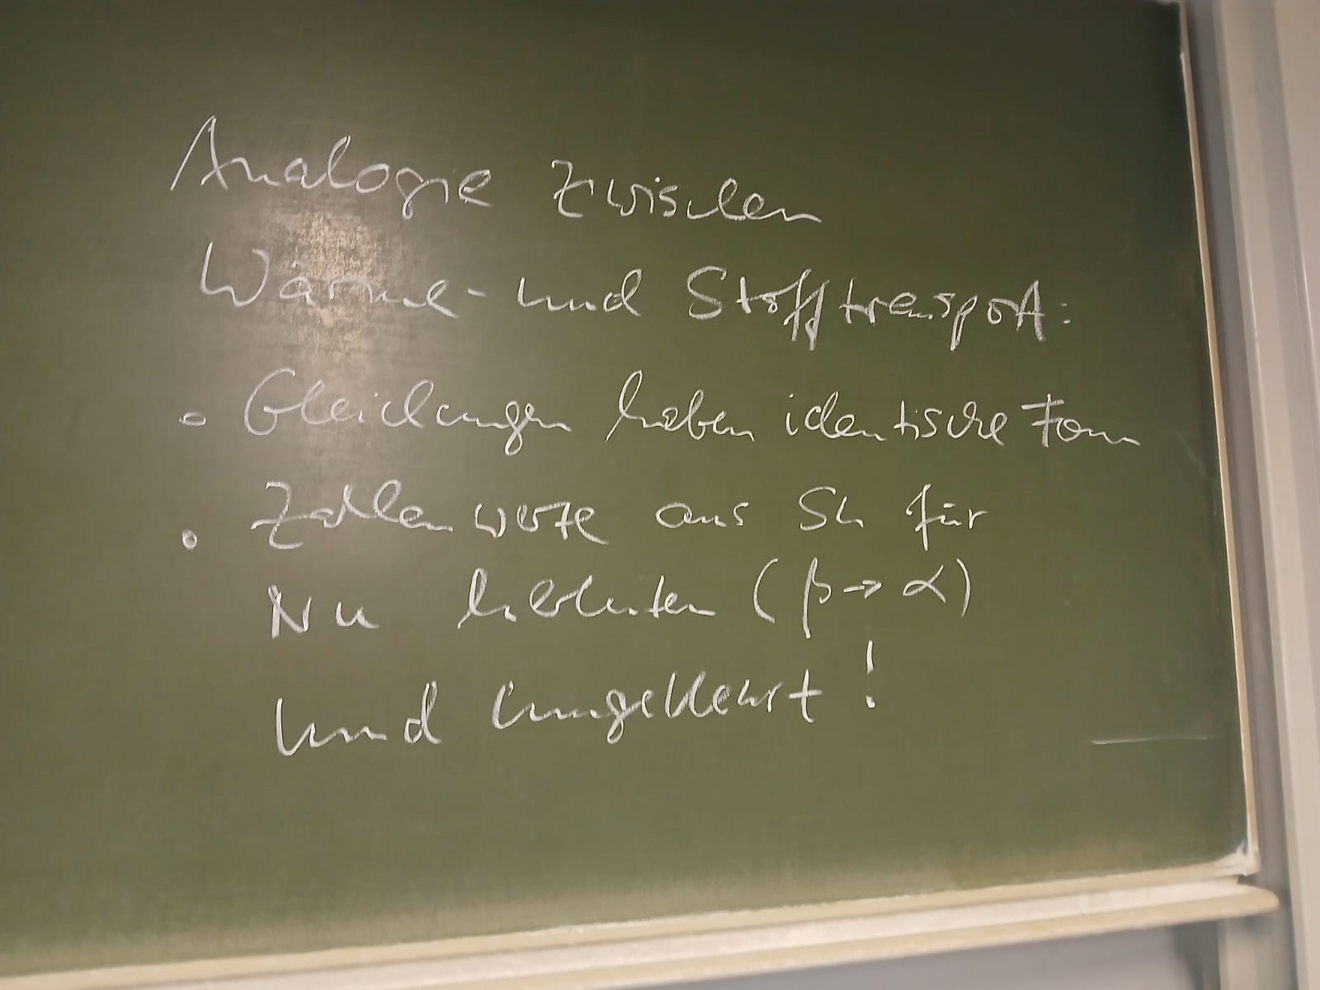 Analogie zwischen
Wärme- und Stofftransport:
• Gleichungen haben identische Form
• Zahlenwerte aus Sh für
Nu (β → α)
und umgekehrt!